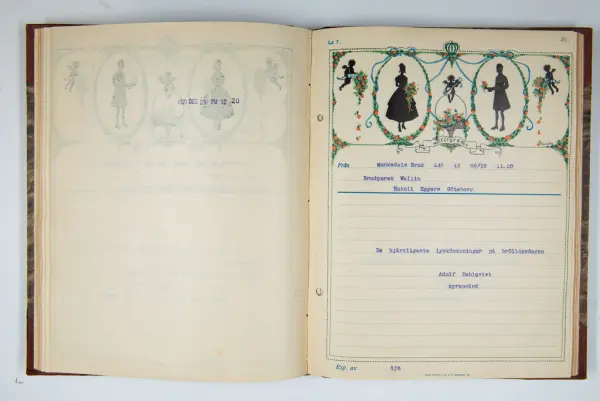 DEC 29 PM 12 20
Lx 7.
Telegram
Från Munkedals Bruk 145 12 29/12 11.10
Brudparet Wallin
Hotell Eggers Göteborg
De hjärtligaste lyckönskningar på bröllopsdagen
Adolf Dahlqvist
kyrkovärd
Exp. av